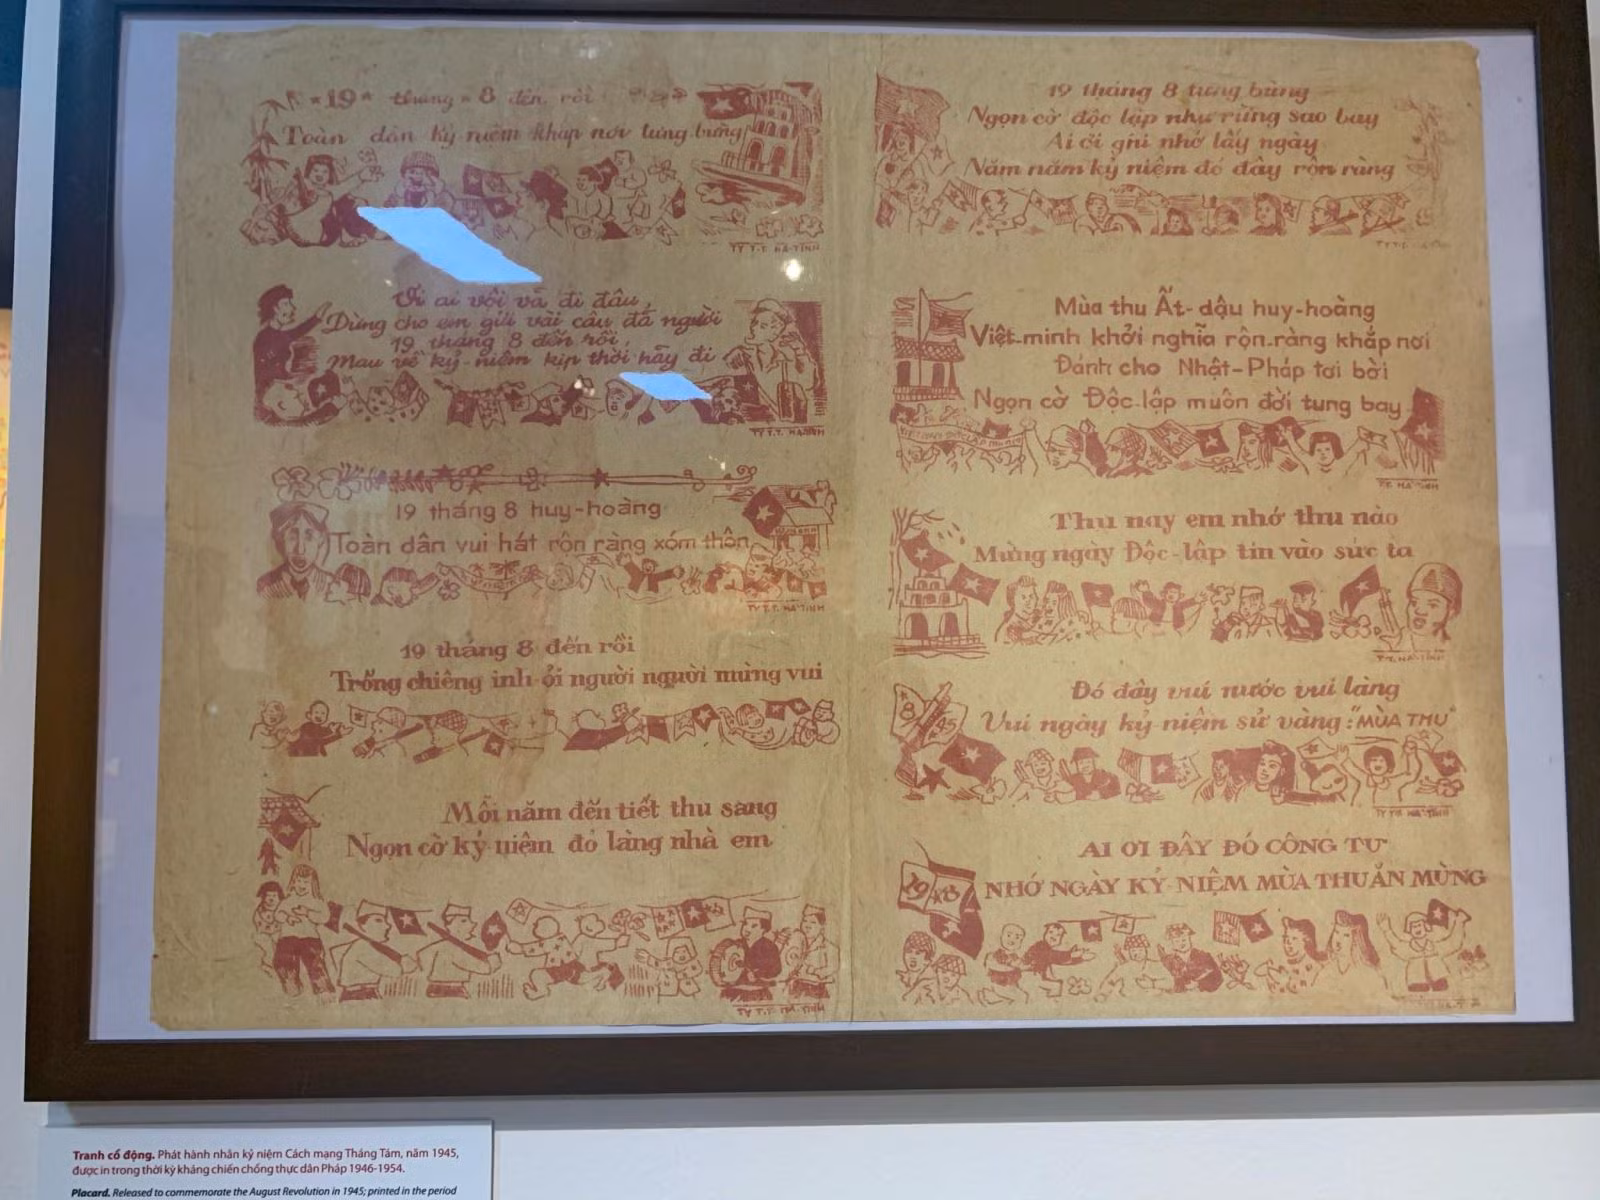 19 tháng 8 đến rồi
Toàn dân kỷ niệm khắp nơi tưng bừng
TY T.T. HÀ-TĨNH
Ơi ai vội vã đi đâu,
Dừng cho em gửi vài câu đã người
19 tháng 8 đến rồi,
Mau về kỷ-niệm kịp thời hãy đi
TY T.T. HÀ-TĨNH
19 tháng 8 huy-hoàng
Toàn dân vui hát rộn ràng xóm thôn
TY T.T. HÀ TĨNH
19 tháng 8 đến rồi
Trống chiêng inh ỏi người người mừng vui
Mỗi năm đến tiết thu sang
Ngọn cờ kỷ niệm đỏ làng nhà em
TY T.T. HÀ-TĨNH
19 tháng 8 tưng bừng
Ngọn cờ độc lập như rừng sao bay
Ai ơi ghi nhớ lấy ngày
Năm năm kỷ niệm đó đây rộn ràng
TY T.T.
Mùa thu Ất-dậu huy-hoàng
Việt-minh khởi nghĩa rộn ràng khắp nơi
Đánh cho Nhật-Pháp tơi bời
Ngọn cờ Độc-lập muôn đời tung bay
T.T. HÀ-TĨNH
Thu nay em nhớ thu nào
Mừng ngày Độc-lập tin vào sức ta
T.T. HÀ-TĨNH
8
45
Đó đây vui nước vui làng
Vui ngày kỷ niệm sử vàng: "MÙA THU"
TY T.T. HÀ-TĨNH
19 8
AI ƠI ĐÂY ĐÓ CÔNG TƯ
NHỚ NGÀY KỶ NIỆM MÙA THU ĂN MỪNG
Tranh cổ động. Phát hành nhân kỷ niệm Cách mạng Tháng Tám, năm 1945,
được in trong thời kỳ kháng chiến chống thực dân Pháp 1946-1954.
Placard. Released to commemorate the August Revolution in 1945; printed in the period